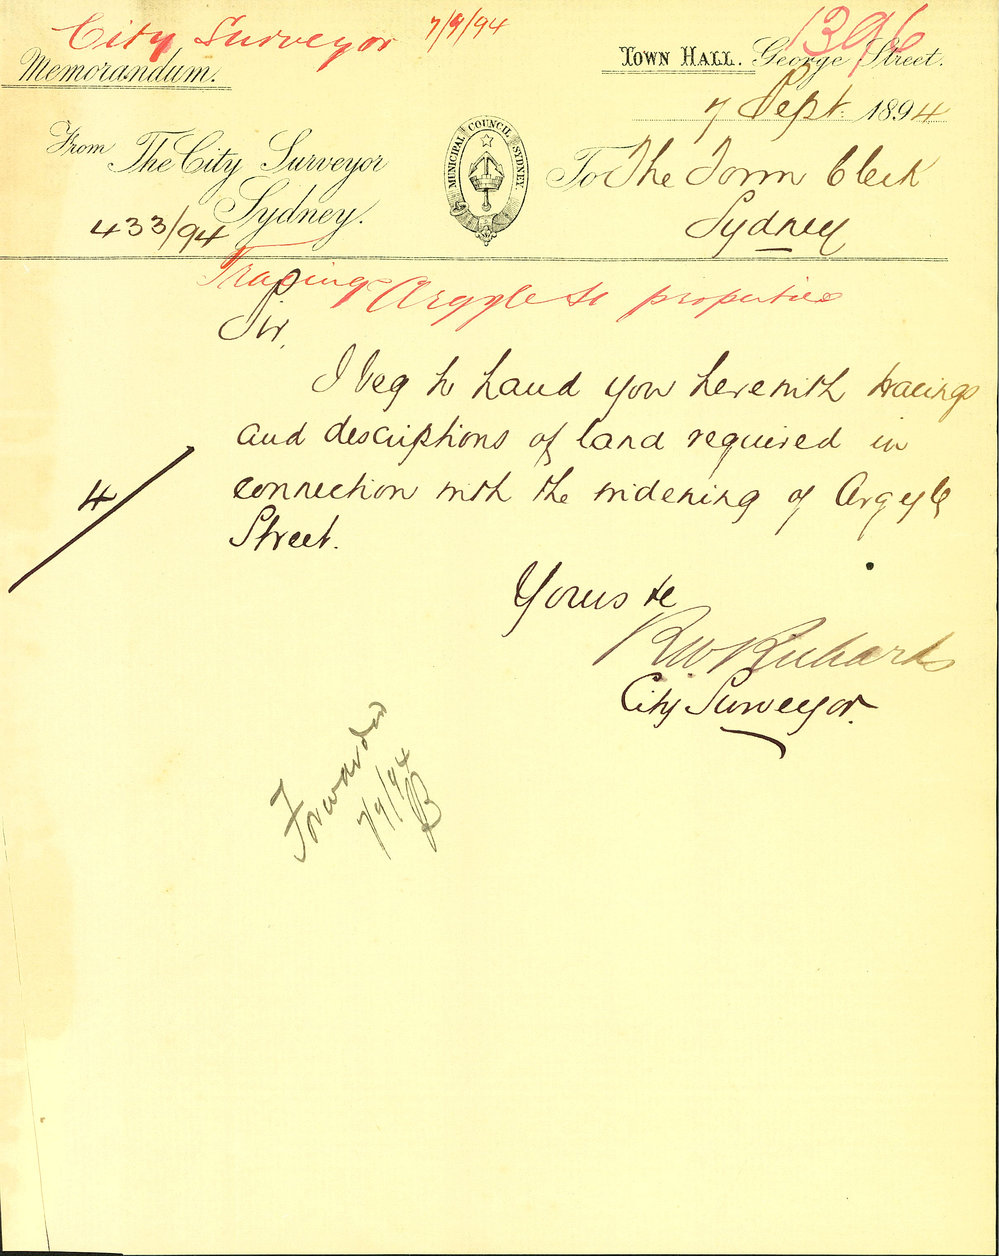 City Surveyor 7/9/94
1396
Memorandum.
Town Hall. George Street.
7 Sept. 1894
From The City Surveyor
Sydney.
433/94
MUNICIPAL COUNCIL SYDNEY
To The Town Clerk
Sydney
Tracings Argyle St properties
Sir,
I beg to hand you herewith tracings
and descriptions of land required in
connection with the widening of Argyle
Street.
4/
Yours &c
R W Richards
City Surveyor.
Forwarded
7/9/94